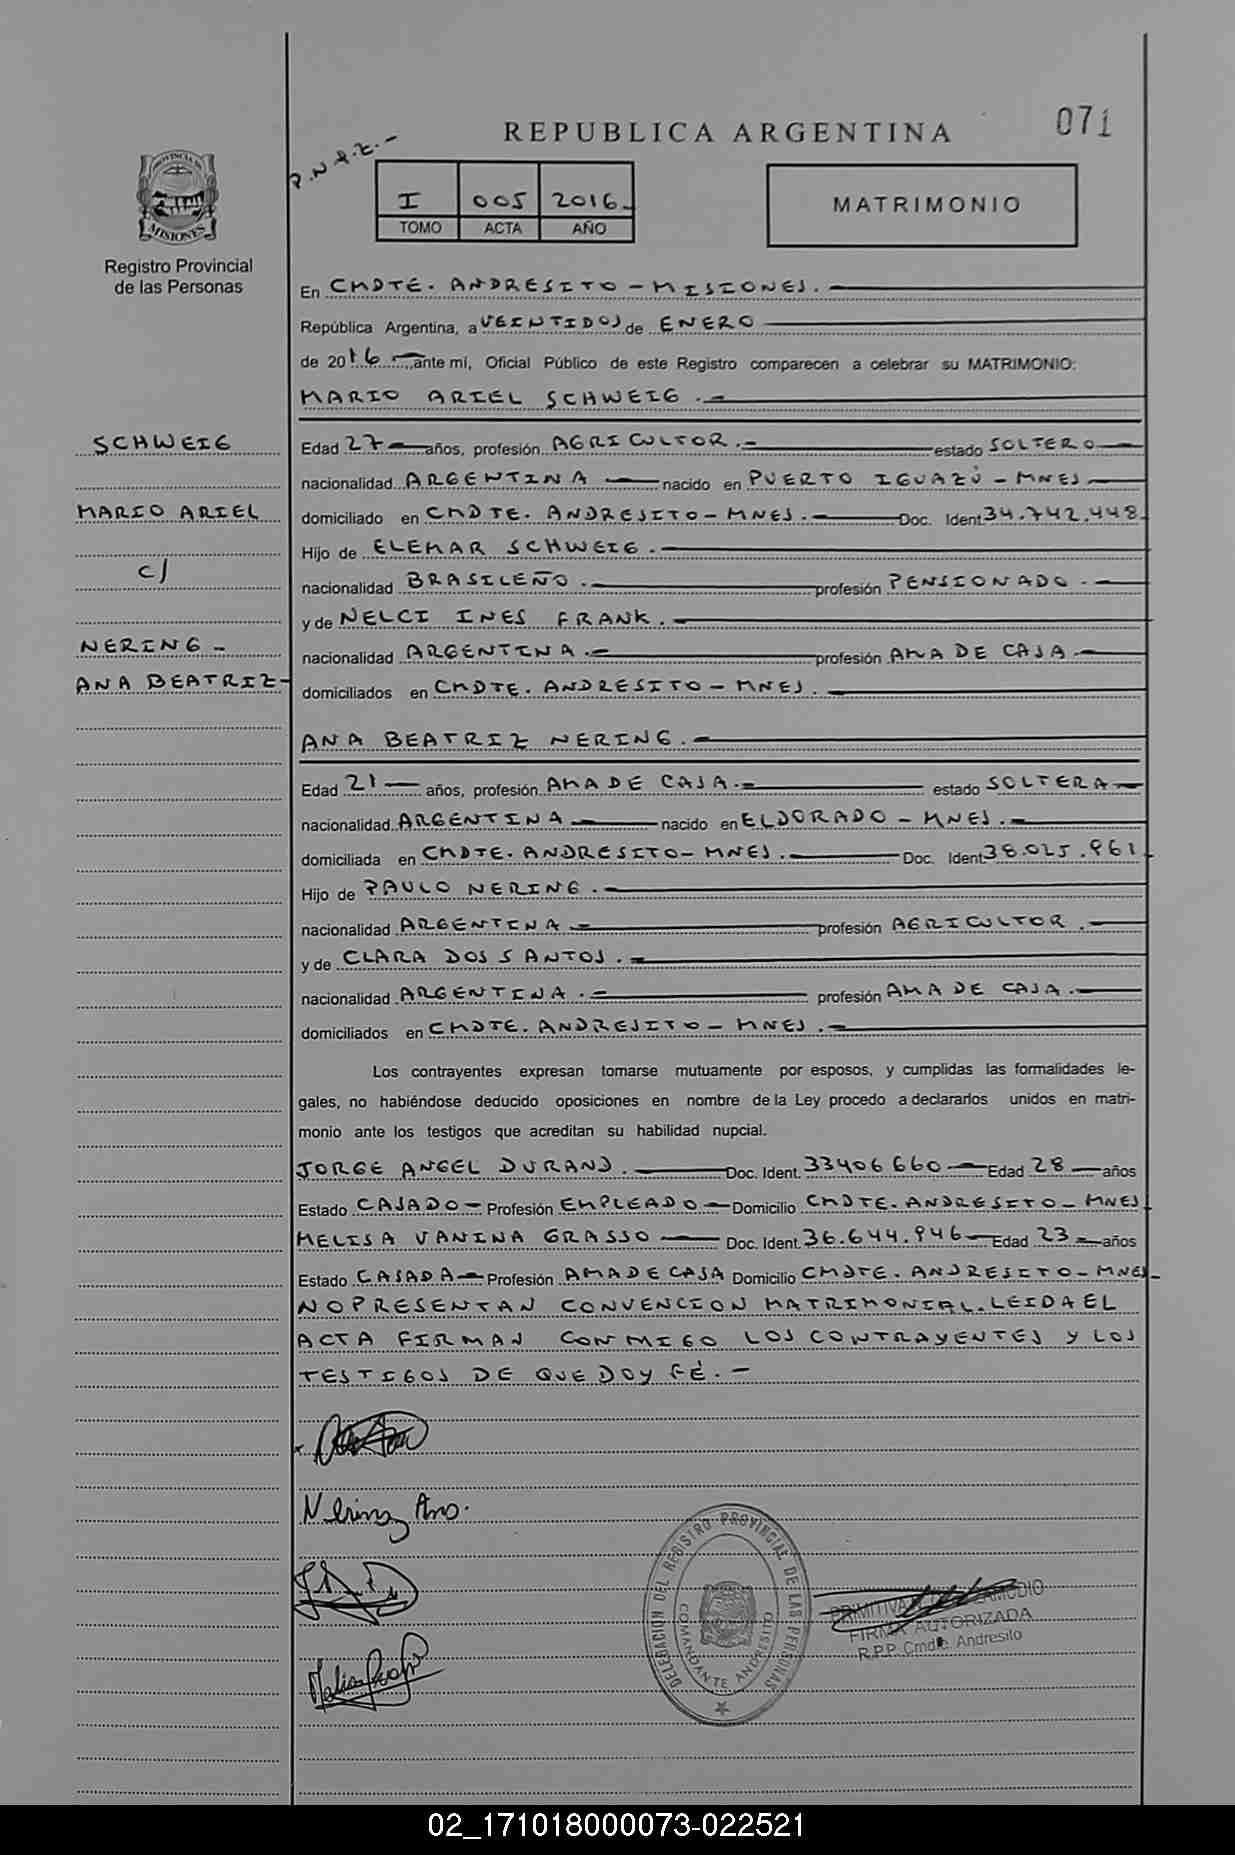 REPUBLICA ARGENTINA
071
P.N.A.Z.-
I 005 2016
TOMO ACTA AÑO
MATRIMONIO
PROVINCIA DE
MISIONES
Registro Provincial
de las Personas
En CMDTE. ANDRESITO - MISIONES.
República Argentina, a VEINTIDOS de ENERO
de 2016 ante mí, Oficial Público de este Registro comparecen a celebrar su MATRIMONIO:
MARIO ARIEL SCHWEIG.
SCHWEIG
MARIO ARIEL
C/
NERING -
ANA BEATRIZ-
Edad 27 años, profesión AGRICULTOR. estado SOLTERO
nacionalidad ARGENTINA nacido en PUERTO IGUAZÚ - MNES
domiciliado en CMDTE. ANDRESITO - MNES. Doc. Ident 34.742.448
Hijo de ELEMAR SCHWEIG.
nacionalidad BRASILEÑO. profesión PENSIONADO.
y de NELCI INES FRANK.
nacionalidad ARGENTINA. profesión AMA DE CASA
domiciliados en CMDTE. ANDRESITO - MNES.
ANA BEATRIZ NERING.
Edad 21 años, profesión AMA DE CASA. estado SOLTERA
nacionalidad ARGENTINA nacido en ELDORADO - MNES.
domiciliada en CMDTE. ANDRESITO - MNES. Doc. Ident 38.025.961
Hijo de PAULO NERING.
nacionalidad ARGENTINA profesión AGRICULTOR.
y de CLARA DOS SANTOS.
nacionalidad ARGENTINA. profesión AMA DE CASA.
domiciliados en CMDTE. ANDRESITO - MNES.
Los contrayentes expresan tomarse mutuamente por esposos, y cumplidas las formalidades le-
gales, no habiéndose deducido oposiciones en nombre de la Ley procedo a declararlos unidos en matri-
monio ante los testigos que acreditan su habilidad nupcial.
JORGE ANGEL DURAND. Doc. Ident. 33406660 Edad 28 años
Estado CASADO - Profesión EMPLEADO Domicilio CMDTE. ANDRESITO - MNES
MELISA VANINA GRASSO Doc. Ident. 36.644.946 Edad 23 años
Estado CASADA Profesión AMA DE CASA Domicilio CMDTE. ANDRESITO - MNES-
NO PRESENTAN CONVENCION MATRIMONIAL. LEIDA EL
ACTA FIRMAN CONMIGO LOS CONTRAYENTES Y LOS
TESTIGOS DE QUE DOY FÉ. -
Nering Ana.
DELEGACION DEL REGISTRO PROVINCIAL DE LAS PERSONAS
COMANDANTE ANDRESITO
FIRMA AUTORIZADA
R.P.P. Cmdte. Andresito
02_171018000073-022521